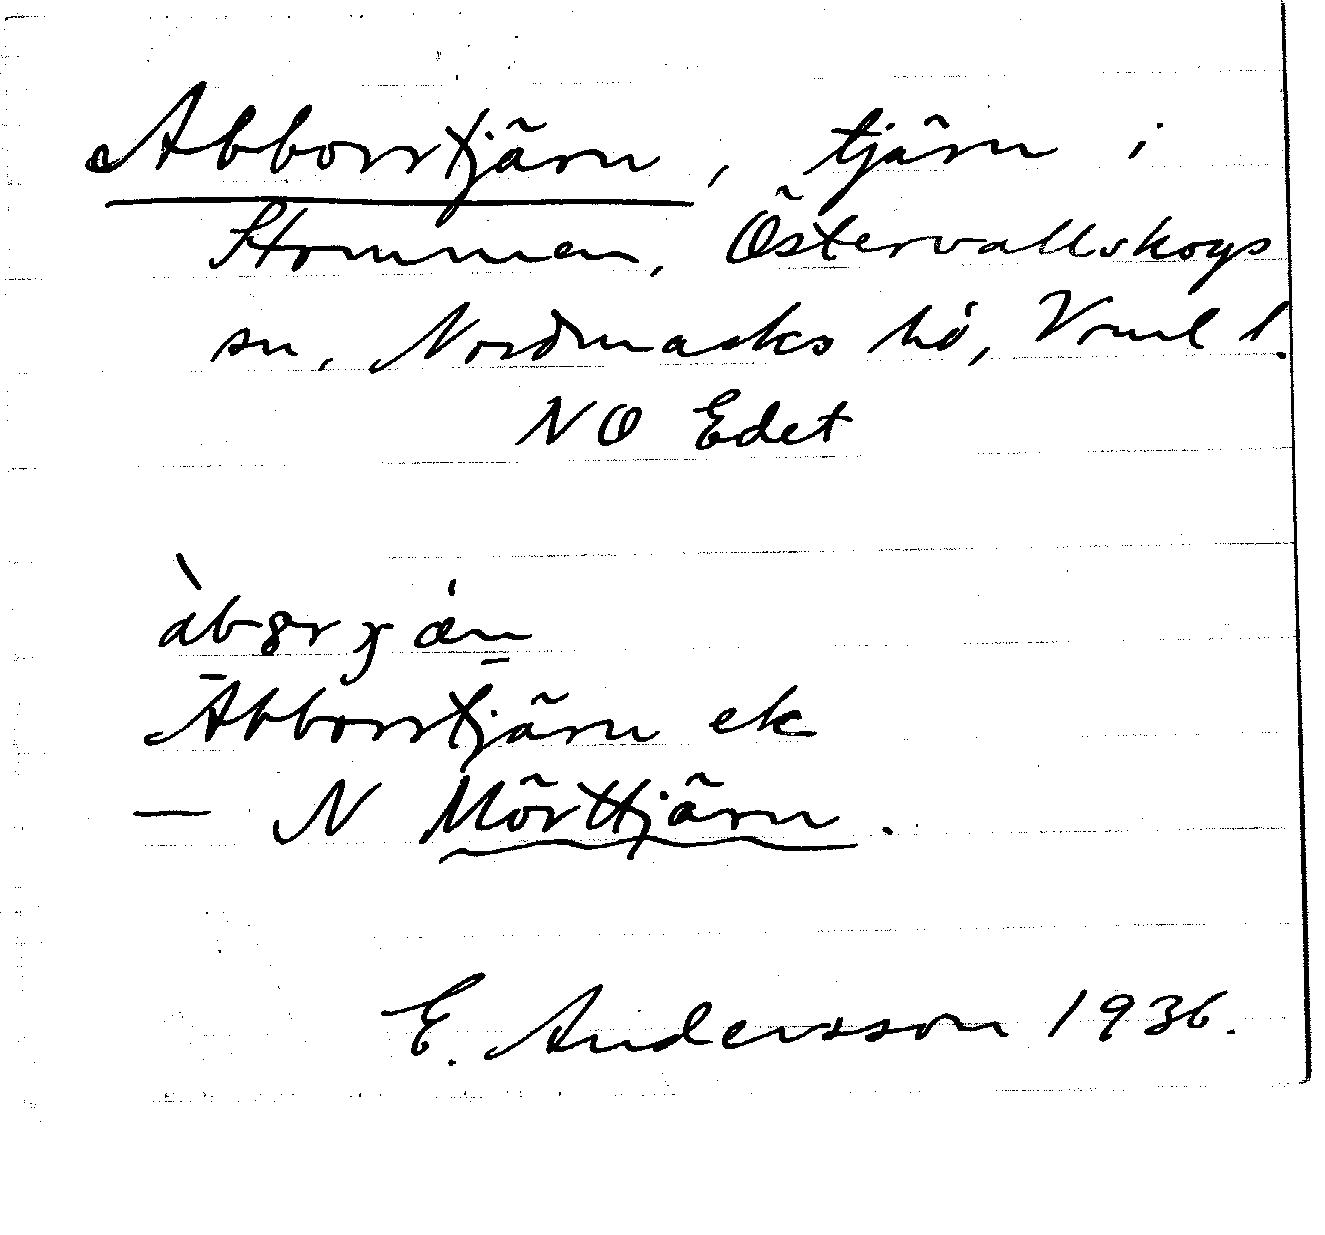 Abborrtjärn, tjärn i
Stommen, Östervallskogs
sn, Nordmarks hd, Vrml l.
NO Edet
Abborrtjärn ek
— N Mörttjärn.
E. Andersson 1936.